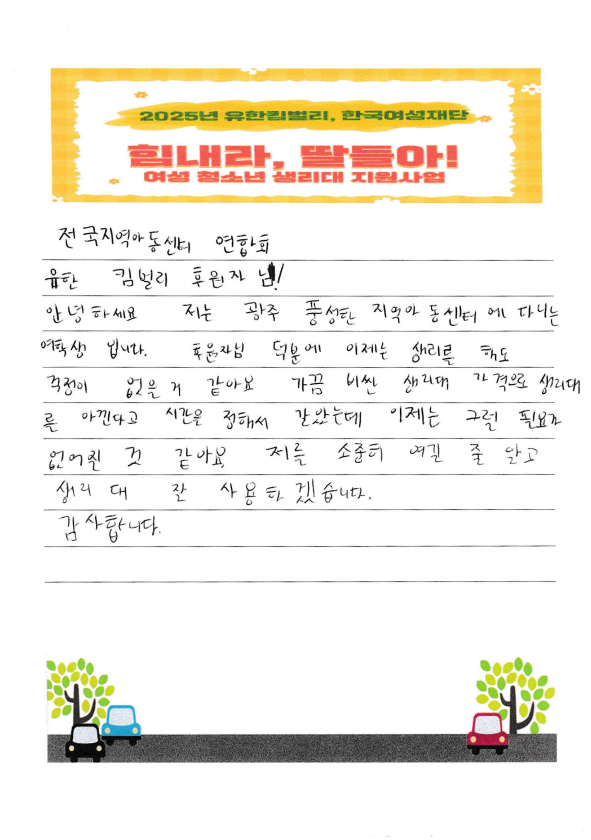 2025년 유한킴벌리, 한국여성재단
힘내라, 딸들아!
여성 청소년 생리대 지원사업
전국지역아동센터 연합회
유한 킴벌리 후원자 님!
안녕하세요 저는 광주 풍성한 지역아동센터에 다니는
여학생 입니다. 후원자님 덕분에 이제는 생리를 해도
걱정이 없을거 같아요 가끔 비싼 생리대 가격으로 생리대
를 아낀다고 시간을 정해서 갈았는데 이제는 그럴 필요가
없어진 것 같아요 저를 소중히 여길 줄 알고
생리대 잘 사용하겠습니다.
감사합니다.